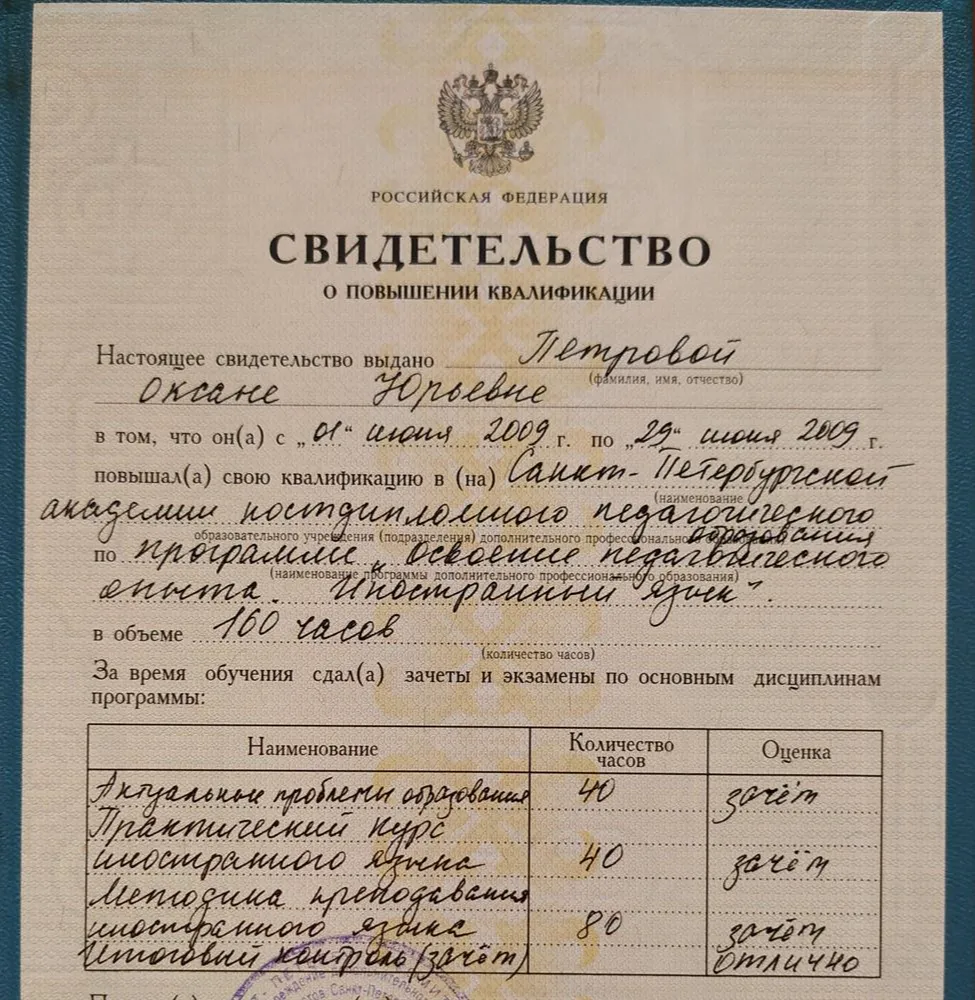 РОССИЙСКАЯ ФЕДЕРАЦИЯ
СВИДЕТЕЛЬСТВО
О ПОВЫШЕНИИ КВАЛИФИКАЦИИ
Настоящее свидетельство выдано Петровой
(фамилия, имя, отчество)
Оксане Юрьевне
в том, что он(а) с „01“ июня 2009 г. по „29“ июня 2009 г.
повышал(а) свою квалификацию в (на) Санкт-Петербургской
(наименование
академии постдипломного педагогического
образования
образовательного учреждения (подразделения) дополнительного профессионального
по программе „Освоение педагогического
(наименование программы дополнительного профессионального образования)
опыта. Иностранный язык“.
в объеме 160 часов
(количество часов)
За время обучения сдал(а) зачеты и экзамены по основным дисциплинам
программы:
Наименование Количество часов Оценка
Актуальные проблемы образования 40 зачёт
Практический курс
иностранного языка 40 зачёт
Методика преподавания
иностранного языка 80 зачёт
Итоговый контроль (зачёт) отлично